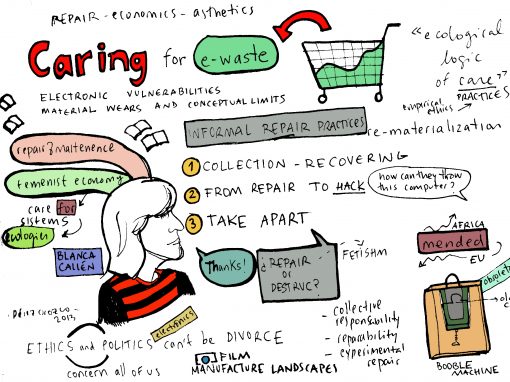 REPAIR - economics - asthetics
Caring for e-waste
ELECTRONIC VULNERABILITIES
MATERIAL WEARS AND CONCEPTUAL LIMITS
"ecological
logic
of care"
PRACTICES
empirical
ethics
INFORMAL REPAIR PRACTICES
re-materialization
repair & maitenence
femenist economy
care for
sistems
ecologies
BLANCA
CALLÉN
1 COLLECTION - RECOVERING
2 FROM REPAIR TO HACK
how can they throw
this computer?
3 TAKE APART
Thanks!
¿ REPAIR
or
DESTRUC?
FETISHM
AFRICA
mended
EU
obsolete
BOOBLE
MACHINE
2013
electronics
ETHICS and POLITICS can't be DIVORCE
concern all of us
FILM
MANUFACTURE LANDSCAPES
- collective
responsability
- reparability
- experimental
repair